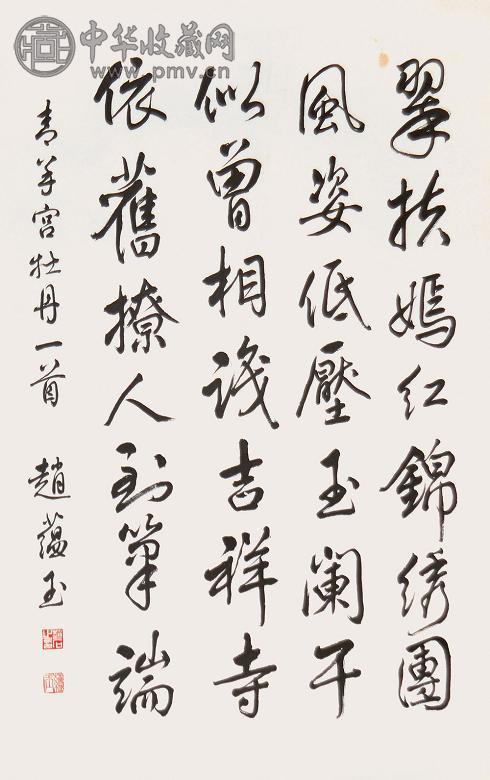 翠扶嫣红錦绣團
風姿低壓玉阑干
似曾相識吉祥寺
依舊撩人到筆端
青羊宫牡丹一首
趙蘊玉
中华收藏网
www.pmv.cn